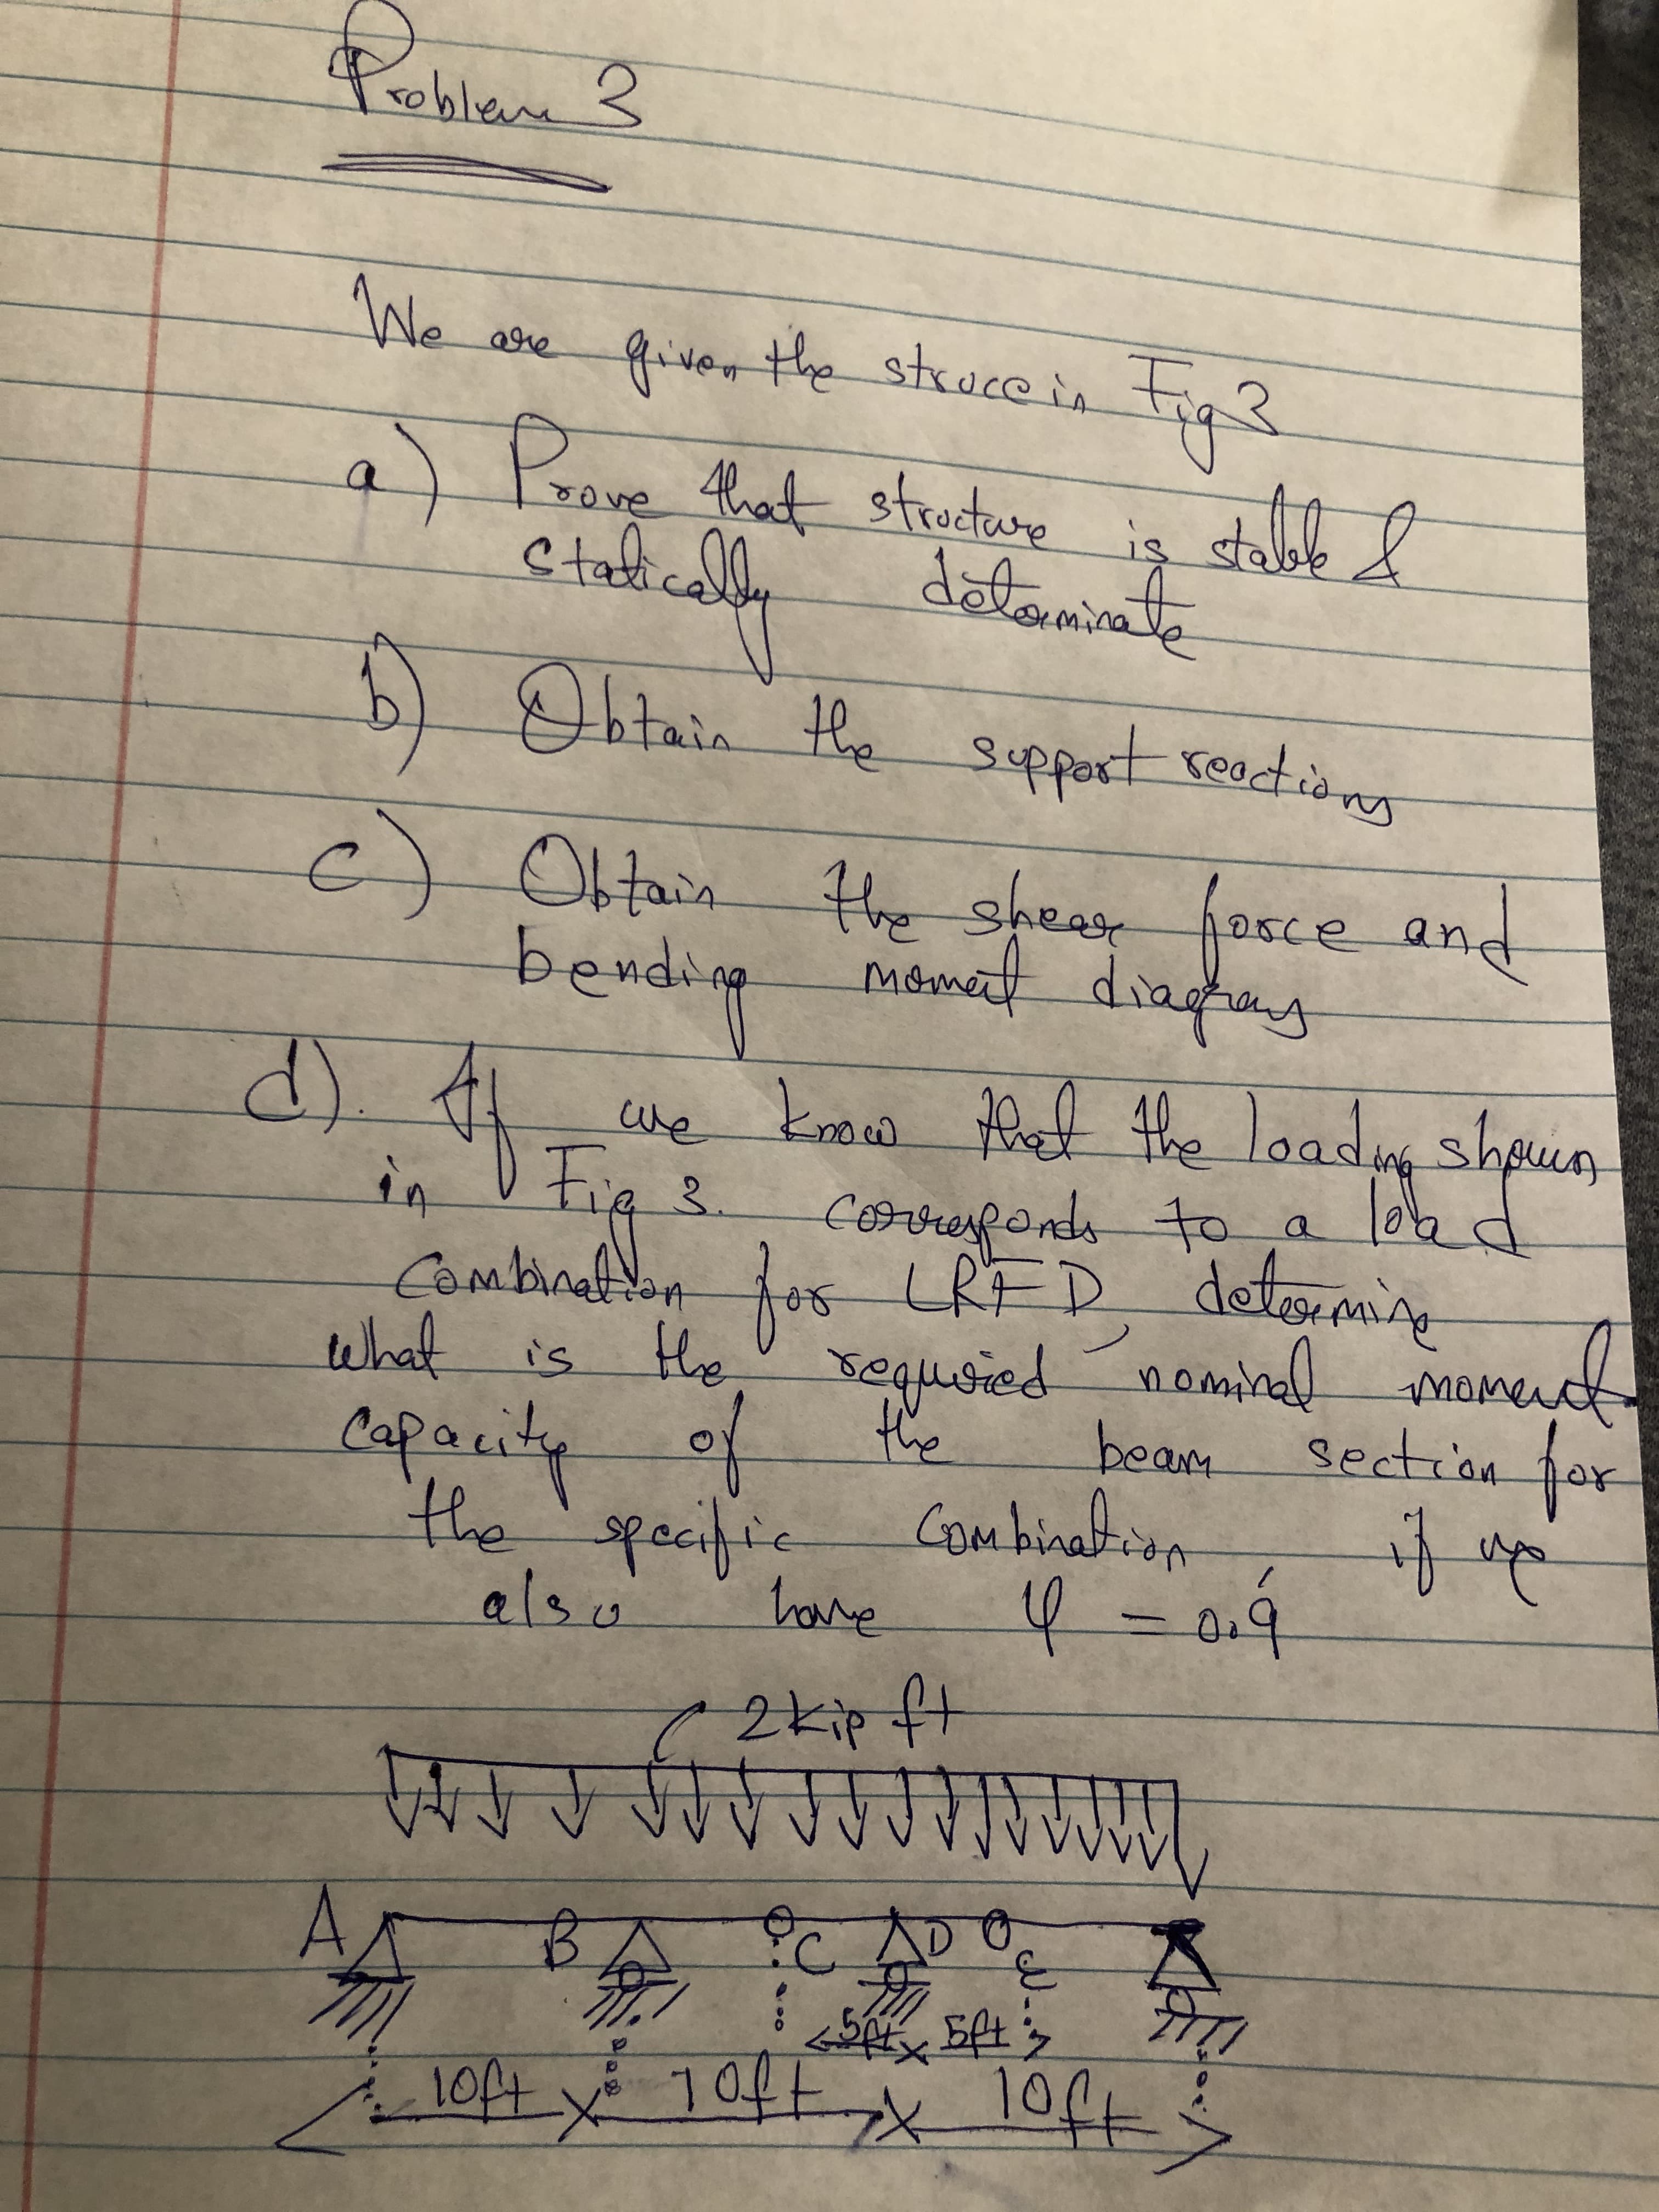 Problem 3
We are given the struce in Fig 3
a) Prove that structure is stable &
statically determinate
b) Obtain the support reactions
c) Obtain the shear force and
bending moment diagrams
d). If we know that the loading shown
in Fig 3. corresponds to a load
combination for LRFD, determine
what is the required nominal moment
capacity of the beam section for
the specific combination if we
also have φ = 0.9
2 kip ft
A B C D E
5ft 5ft
10ft 10ft 10ft